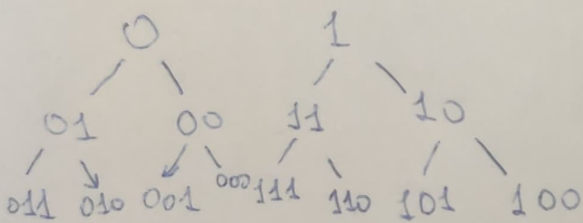 0 1
01 00 11 10
011 010 001 000 111 110 101 100